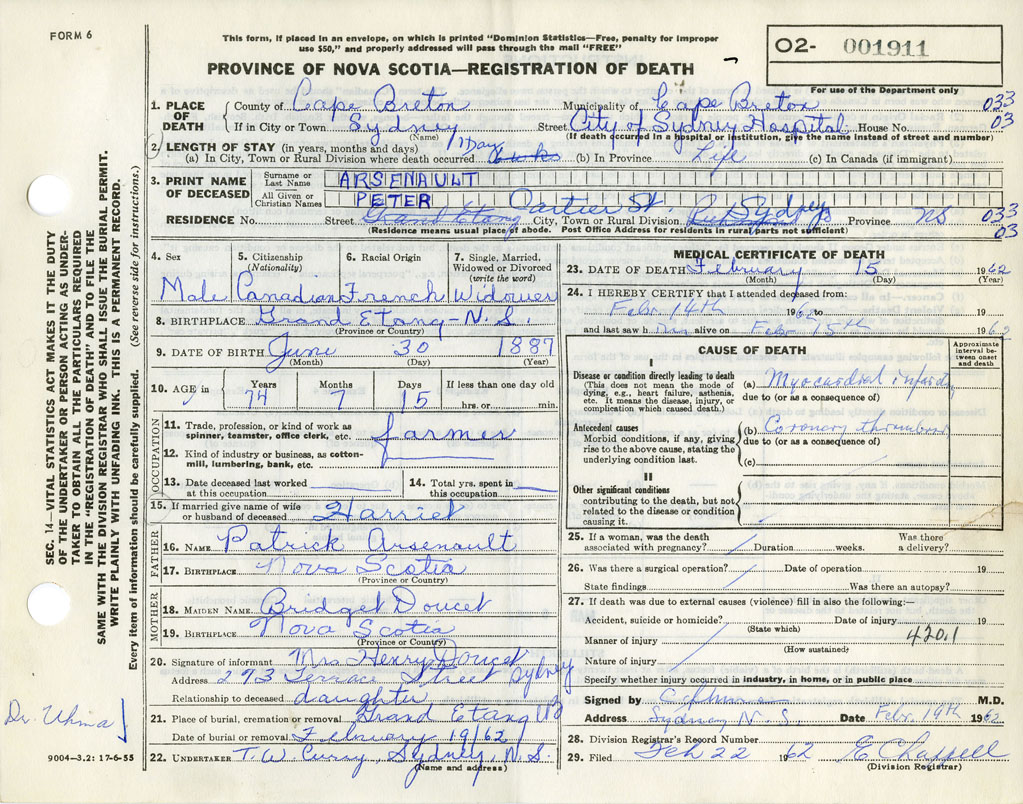 FORM 6
This form, if placed in an envelope, on which is printed "Dominion Statistics—Free, penalty for improper
use $50," and properly addressed will pass through the mail "FREE"
PROVINCE OF NOVA SCOTIA—REGISTRATION OF DEATH
02- 001911
For use of the Department only
1. PLACE OF DEATH County of Cape Breton Municipality of Cape Breton 033
If in City or Town Sydney Street City of Sydney Hospital House No. 03
(Name) (If death occurred in a hospital or institution, give the name instead of street and number)
2. LENGTH OF STAY (in years, months and days) 1 Day
(a) In City, Town or Rural Division where death occurred (b) In Province Life (c) In Canada (if immigrant)
3. PRINT NAME OF DECEASED Surname or Last Name ARSENAULT
All Given or Christian Names PETER
Cartier St. Sydney
RESIDENCE No. Street Grand Etang City, Town or Rural Division Province NS 033
(Residence means usual place of abode. Post Office Address for residents in rural parts not sufficient) 03
4. Sex 5. Citizenship (Nationality) 6. Racial Origin 7. Single, Married, Widowed or Divorced (write the word)
Male Canadian French Widower
8. BIRTHPLACE Grand Etang - N.S.
(Province or Country)
9. DATE OF BIRTH June 30 1887
(Month) (Day) (Year)
10. AGE in Years Months Days If less than one day old
74 7 15 hrs. or min.
OCCUPATION
11. Trade, profession, or kind of work as spinner, teamster, office clerk, etc. farmer
12. Kind of industry or business, as cotton-mill, lumbering, bank, etc.
13. Date deceased last worked at this occupation 14. Total yrs. spent in this occupation
15. If married give name of wife or husband of deceased Harriet
FATHER
16. NAME Patrick Arsenault
17. BIRTHPLACE Nova Scotia
(Province or Country)
MOTHER
18. MAIDEN NAME Bridget Doucet
19. BIRTHPLACE Nova Scotia
(Province or Country)
20. Signature of informant Mrs Henry Doucet
Address 273 Terrace Street Sydney
Relationship to deceased daughter
21. Place of burial, cremation or removal Grand Etang NS
Date of burial or removal February 19/62
22. UNDERTAKER T.W. Curry Sydney, N.S.
(Name and address)
MEDICAL CERTIFICATE OF DEATH
23. DATE OF DEATH February 15 1962
(Month) (Day) (Year)
24. I HEREBY CERTIFY that I attended deceased from:
Febr 14th 1962 to
and last saw h im alive on Febr 15th 1962
CAUSE OF DEATH
Approximate interval between onset and death
I
Disease or condition directly leading to death
(This does not mean the mode of dying, e.g., heart failure, asthenia, etc. It means the disease, injury, or complication which caused death.)
(a) Myocardial
due to (or as a consequence of)
Antecedent causes
Morbid conditions, if any, giving rise to the above cause, stating the underlying condition last.
(b) Coronary
due to (or as a consequence of)
(c)
II
Other significant conditions
contributing to the death, but not related to the disease or condition causing it.
25. If a woman, was the death associated with pregnancy? Duration weeks. Was there a delivery?
26. Was there a surgical operation? Date of operation 19
State findings Was there an autopsy?
27. If death was due to external causes (violence) fill in also the following:—
Accident, suicide or homicide? Date of injury 19
(State which)
Manner of injury 420.1
(How sustained)
Nature of injury
Specify whether injury occurred in industry, in home, or in public place
Signed by M.D.
Address Sydney N.S. Date Febr. 19th 1962
28. Division Registrar's Record Number
29. Filed Feb 22 1962 E Chappell
(Division Registrar)
SEC. 14—VITAL STATISTICS ACT MAKES IT THE DUTY
OF THE UNDERTAKER OR PERSON ACTING AS UNDER-
TAKER TO OBTAIN ALL THE PARTICULARS REQUIRED
IN THE "REGISTRATION OF DEATH" AND TO FILE THE
SAME WITH THE DIVISION REGISTRAR WHO SHALL ISSUE THE BURIAL PERMIT.
WRITE PLAINLY WITH UNFADING INK. THIS IS A PERMANENT RECORD.
Every item of information should be carefully supplied. (See reverse side for instructions.)
Dr. Uhma
9004—3.2: 17-6-55